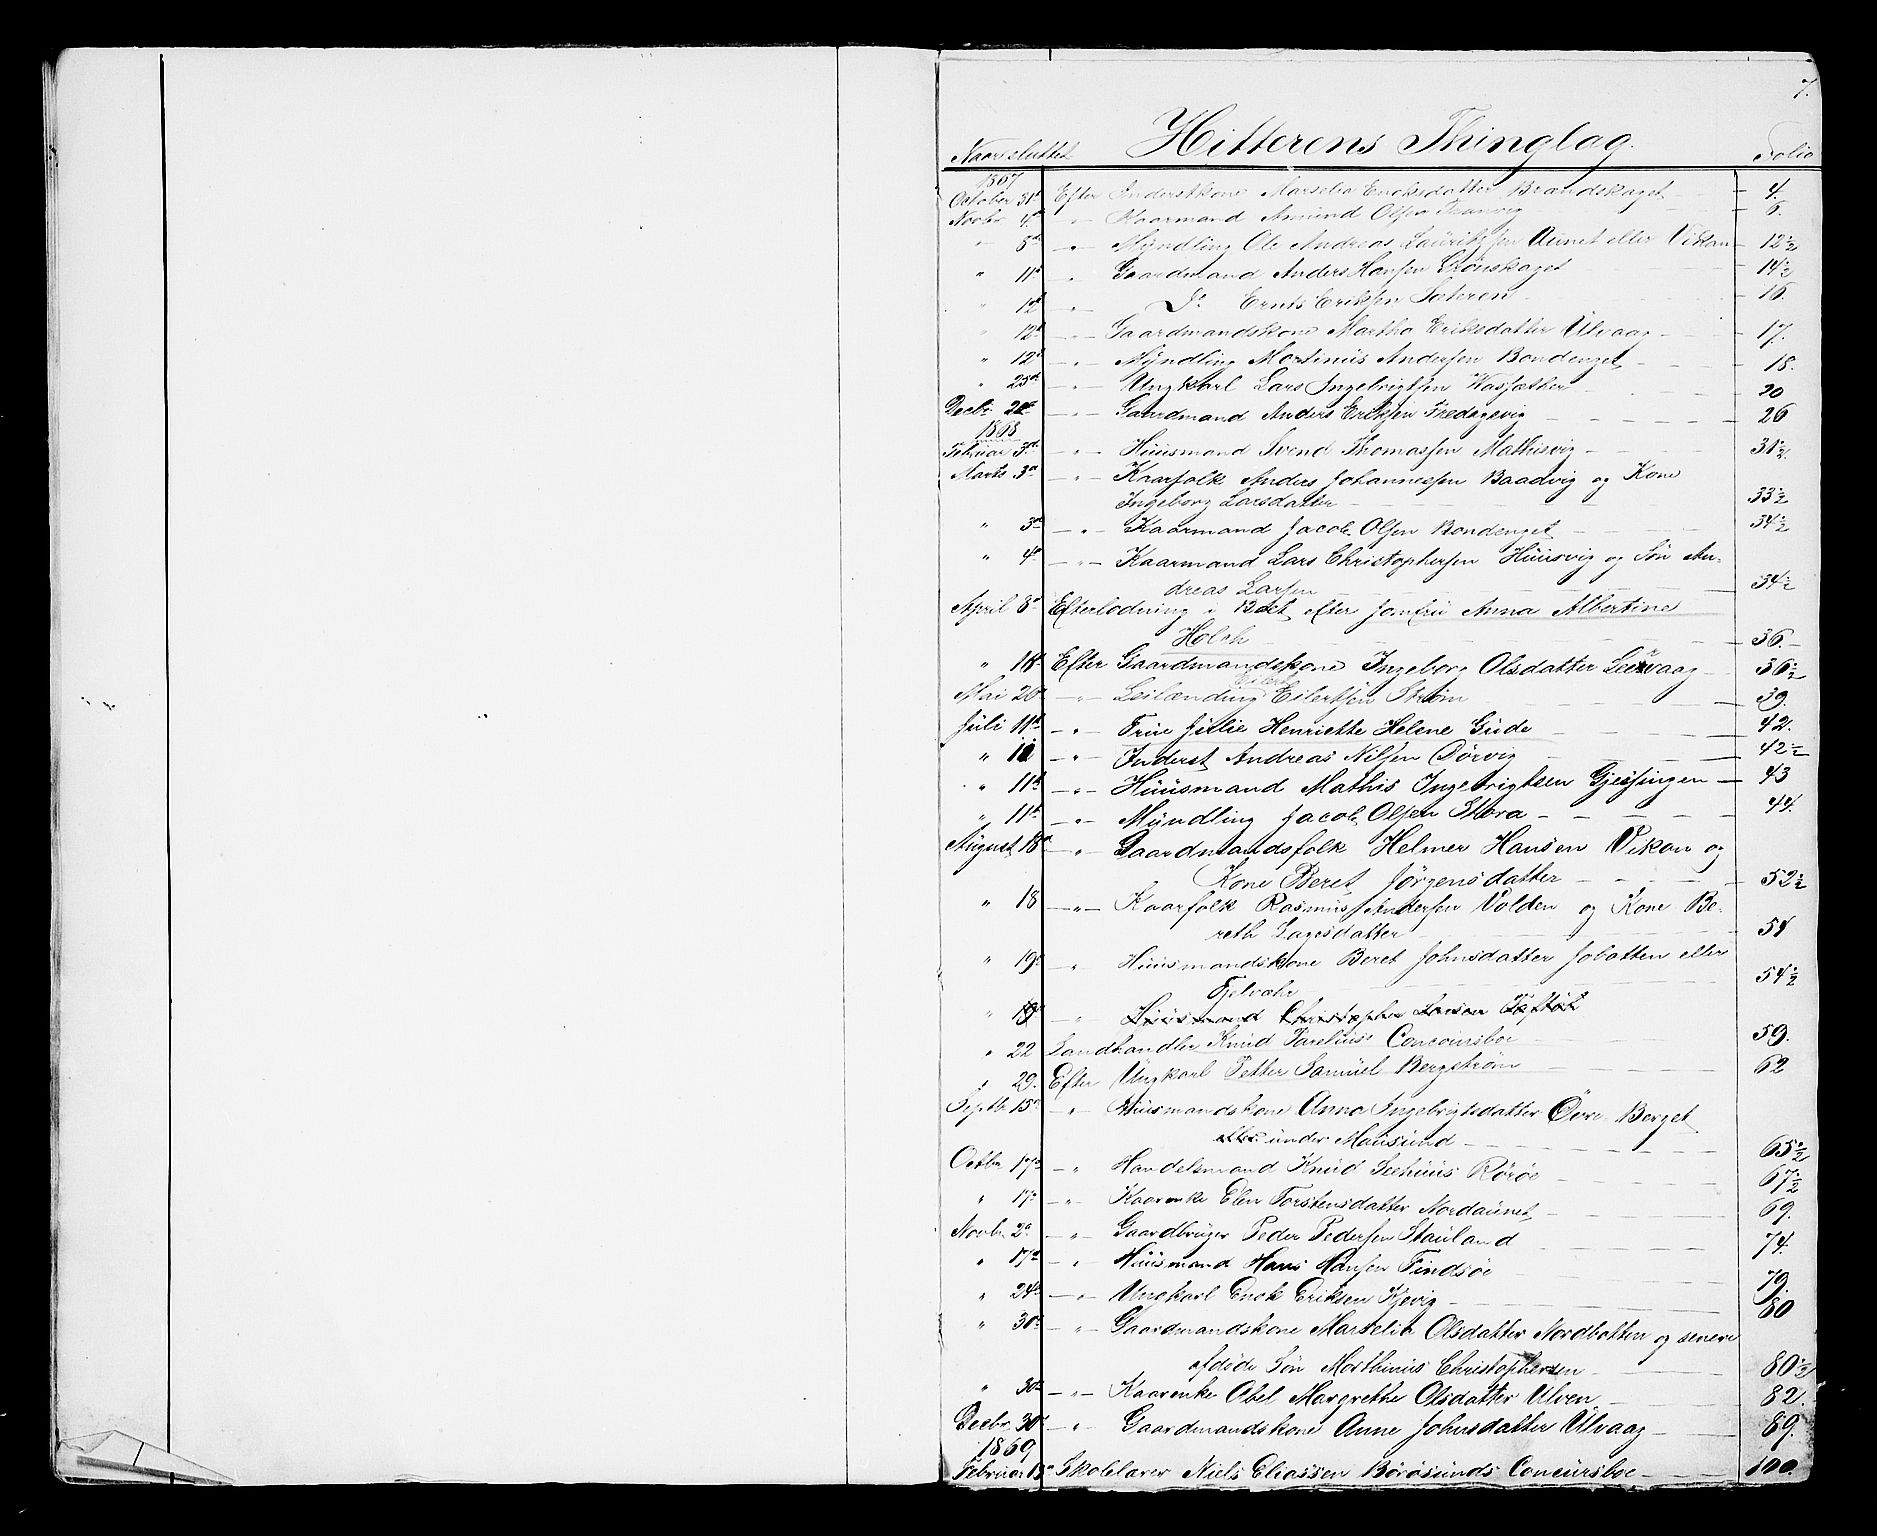 7.
Hitterens Thinglag.
Naar sluttet Folio
1867
October 31te Efter Inderstkone Marselia Enoksdatter Brændskaget 4.
Novbr 4de " Kaarmand Amund Olsen Tranvig 6.
" 5te " Myndling Ole Andreas Lauritzsen Aunet eller Vikan 12 1/2
" 11te " Gaardmand Anders Hansen Grönskaget 14 1/2
" 12te " Do Ernts Eriksen Sæteren 16.
" 12te " Gaardmandskone Martha Eriksdatter Ulvaag 17.
" 12te " Myndling Martinus Andersen Bondenget 18.
" 25de " Ungkarl Lars Ingebrigtsen 20
Decbr 21te " Gaardmand Anders Eriksen Fredagsvig 26
1868
Februar 3de " Huusmand Svend Thomassen Mathisvig 31 1/2.
Marts 3de " Kaarfolk Anders Johannessen Baadvig og Kone
Ingeborg Larsdatter 33 1/2
" 3de " Kaarmand Jacob Olsen Bondenget 34 1/2
" 4de " Kaarmand Lars Christophersen Huusvig og Sön An-
dreas Larsen 34 1/2
April 8de Efterlodering i Boet efter Jomfru Anna Albertine
Holck 36.
" 18de Efter Gaardmandskone Ingeborg Olsdatter Leervaag 36 1/2
Mai 20de " Leilænding Eilert Eilertsen Ström 39.
Juli 11te " Frue Julie Henriette Helene Gude 42.
" 11 " Inderst Andreas Nilsen Dörvig 42 1/2
" 11te " Huusmand Mathis Ingebrigtsen Gjessingen 43
" 11te " Myndling Jacob Olsen Stora 44.
August 18de " Gaardmandsfolk Helmer Hansen Vikan og
Kone Beret Jörgensdatter 52 1/2
" 18 " Kaarfolk Rasmus Andersen Volden og Kone Be-
reth Lagesdatter 54
" 19de " Huusmandskone Beret Johnsdatter Jobotten eller
Fjelvær 54 1/2
" 19 " Huusmand Christopher Larsen Tuftöt
" 22 Landhandler Knud Parelius's Concoursboe 59.
" 29. Efter Ungkarl Petter Samuel Bergström 62
Septbr 15de " Huusmandskone Anna Ingebrigtsdatter Övre Berget
eller under Mausund 65 1/2
Octbr 17de " Handelsmand Knud Seehuus Röröe 67 1/2
" 17de " Kaarenke Elen Torstensdatter Nordaunet 69.
Novbr 2de " Gaardbruger Peder Pedersen Stauland 74.
" 17de " Huusmand Hans Hansen Findsöe 79.
" 24de " Ungkarl Enok Eriksen Kjevig 80
" 30te " Gaardmandskone Marselia Olsdatter Nordbotten og senere
afdöde Sön Morthinus Christophersen 80 1/2
" 30te " Kaarenke Abel Margrethe Olsdatter Ulven 82.
Decbr 30te " Gaardmandskone Anne Johnsdatter Ulvaag 89.
1869
Februar 15de Skolelærer Niels Eliassen Börösunds Concursboe 100.